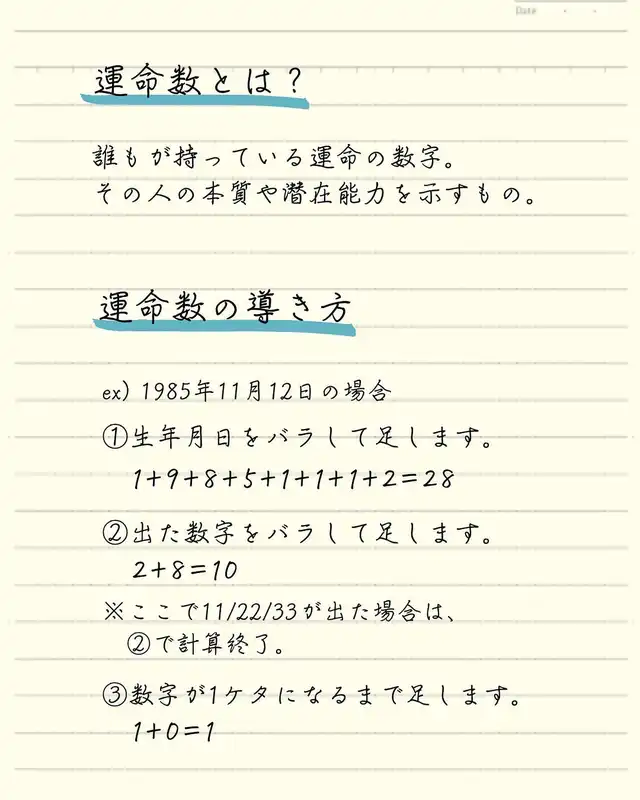 Date
運命数とは?
誰もが持っている運命の数字。
その人の本質や潜在能力を示すもの。
運命数の導き方
ex) 1985年11月12日の場合
①生年月日をバラして足します。
1+9+8+5+1+1+1+2=28
②出た数字をバラして足します。
2+8=10
※ここで11/22/33が出た場合は、
②で計算終了。
③数字が1ケタになるまで足します。
1+0=1